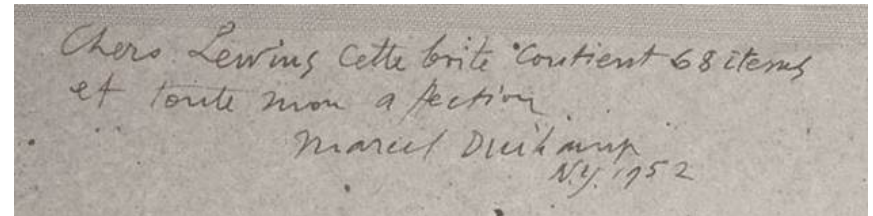 Chers Lewins cette boite contient 68 items
et toute mon affection
Marcel Duchamp
N.Y. 1952